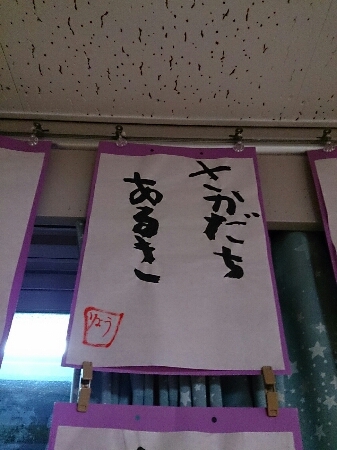 さかだち
あるき
りょう